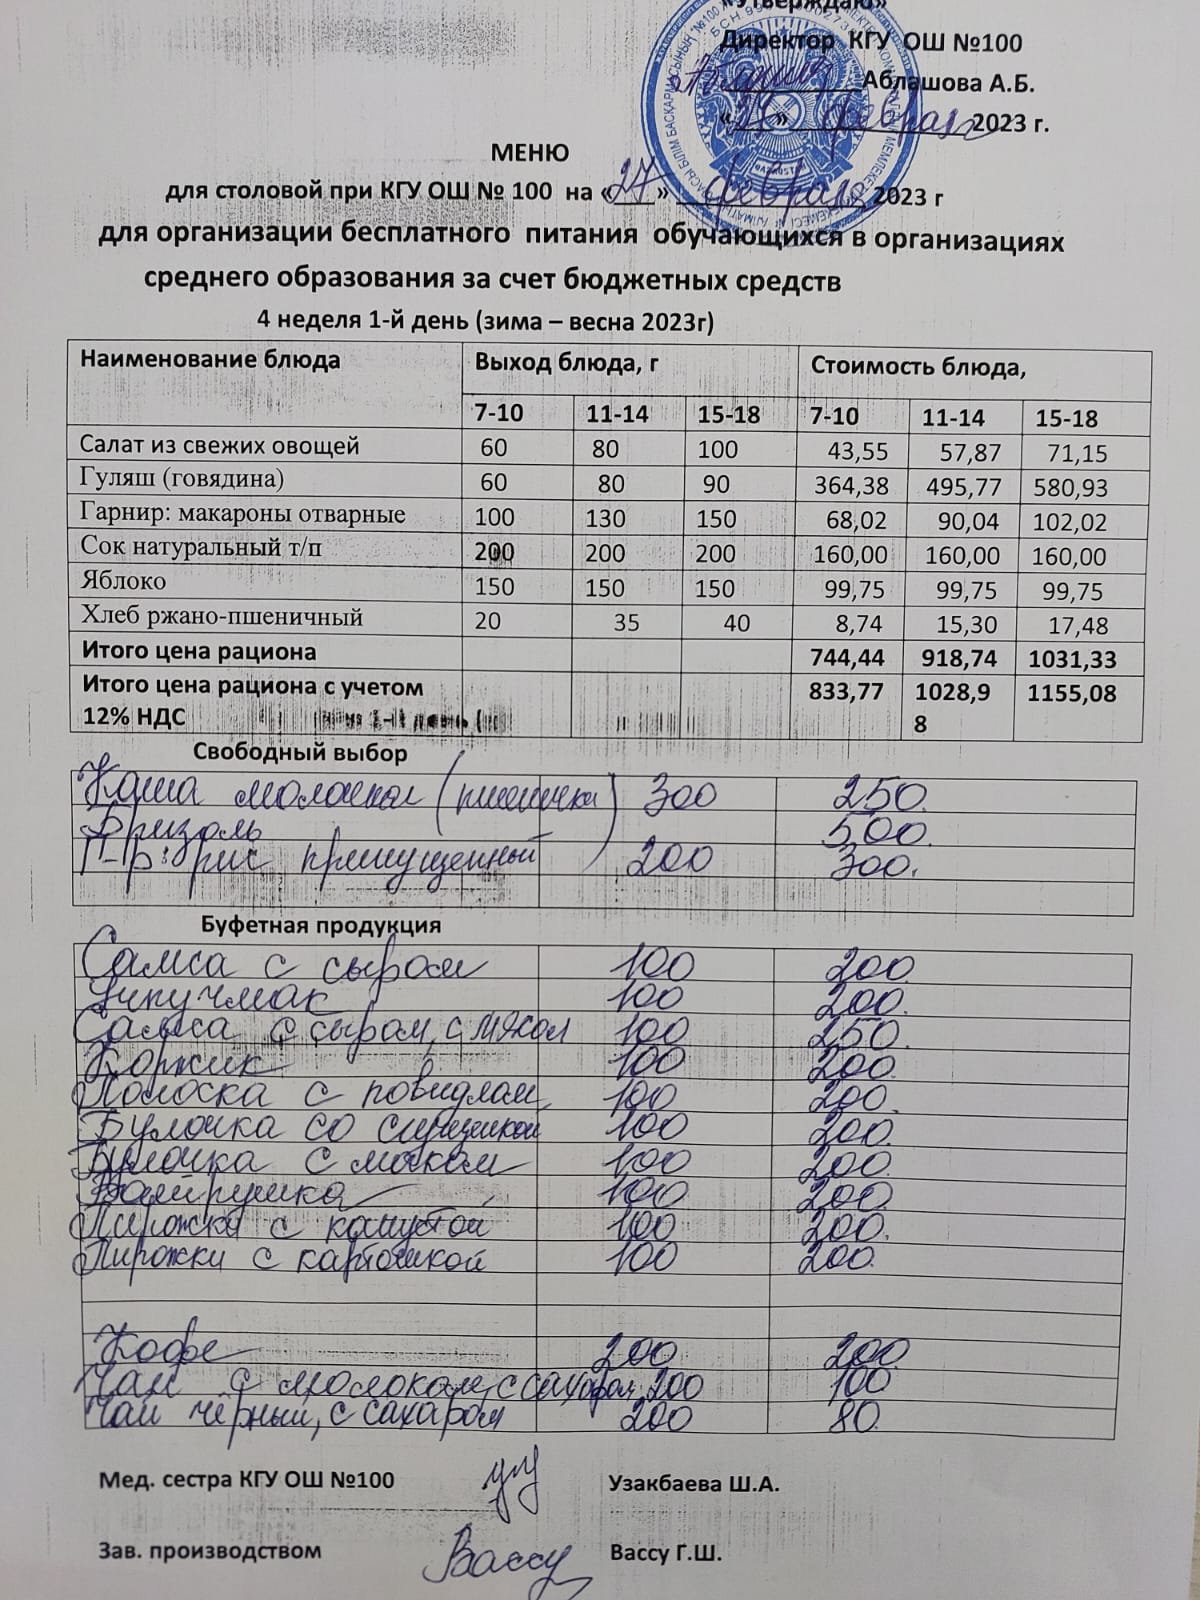 «Утверждаю»
Директор КГУ ОШ №100
Аблашова А.Б.
«27» февраля 2023 г.
МЕНЮ
для столовой при КГУ ОШ № 100 на «27» февраля 2023 г
для организации бесплатного питания обучающихся в организациях
среднего образования за счет бюджетных средств
4 неделя 1-й день (зима – весна 2023г)
Наименование блюда Выход блюда, г Стоимость блюда,
7-10 11-14 15-18 7-10 11-14 15-18
Салат из свежих овощей 60 80 100 43,55 57,87 71,15
Гуляш (говядина) 60 80 90 364,38 495,77 580,93
Гарнир: макароны отварные 100 130 150 68,02 90,04 102,02
Сок натуральный т/п 200 200 200 160,00 160,00 160,00
Яблоко 150 150 150 99,75 99,75 99,75
Хлеб ржано-пшеничный 20 35 40 8,74 15,30 17,48
Итого цена рациона 744,44 918,74 1031,33
Итого цена рациона с учетом 833,77 1028,9 1155,08
12% НДС 8
Свободный выбор
Каша молочная (пшеничка) 300 250.
Бризоль 500.
Г-р: рис припущенный 200 300.
Буфетная продукция
Самса с сыром 100 200.
Учпучмак 100 200.
Самса с сыром, с мясом 100 250.
Коржик 100 200.
Полоска с повидлом 100 200.
Булочка со сгущенкой 100 200.
Булочка с маком 100 200.
Ватрушка 100 200.
Пирожки с капустой 100 200.
Пирожки с картошкой 100 200.
Кофе 200 200.
Чай с молоком, с сахаром, 200 100
Чай чёрный, с сахаром 200 80.
Мед. сестра КГУ ОШ №100 Узакбаева Ш.А.
Зав. производством Вассу Вассу Г.Ш.